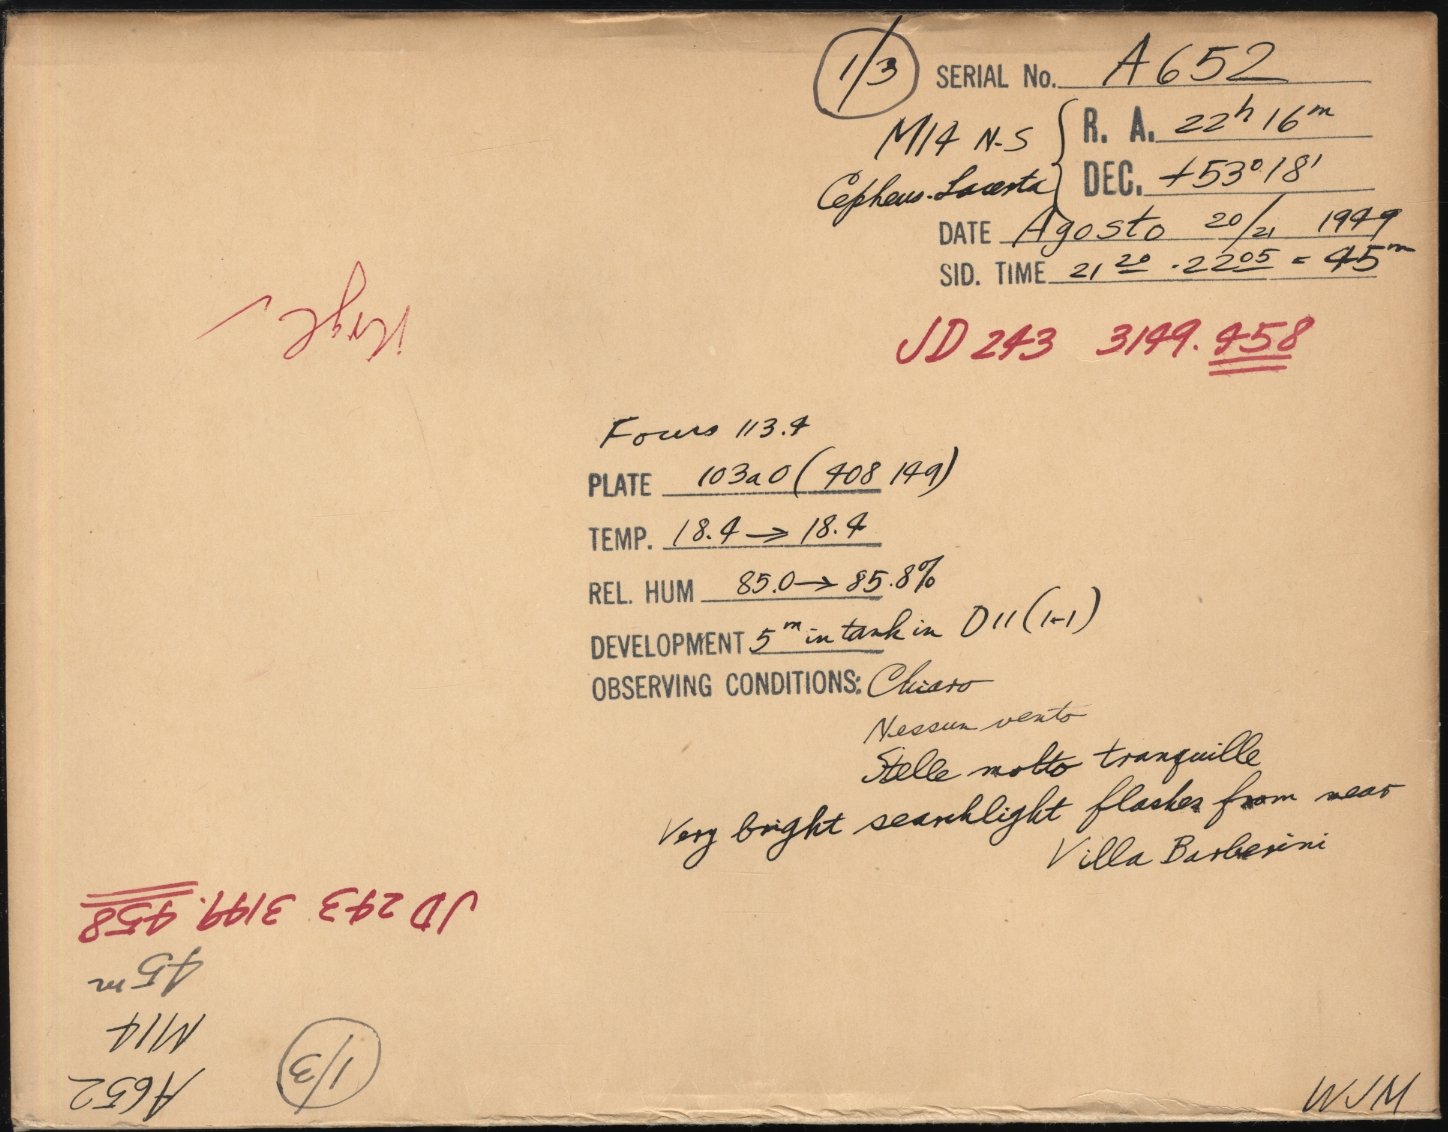 1/3 SERIAL No. A652
M14 N-S R. A. 22h 16m
Cepheus-Lacerta DEC. +53° 18'
DATE Agosto 20/21 1949
SID. TIME 21 20 - 22 05 = 45m
JD 243 3149.458
Focus 113.4
PLATE 103aO (408 149)
TEMP. 18.4 → 18.4
REL. HUM 85.0 → 85.8%
DEVELOPMENT 5m in tank in D11 (1-1)
OBSERVING CONDITIONS: Chiaro
Nessun vento
Stelle molto tranquille
Very bright searchlight flashes from near
Villa Barberini
JD 243 3149.458
45m
M14
A652
1/3
WJM